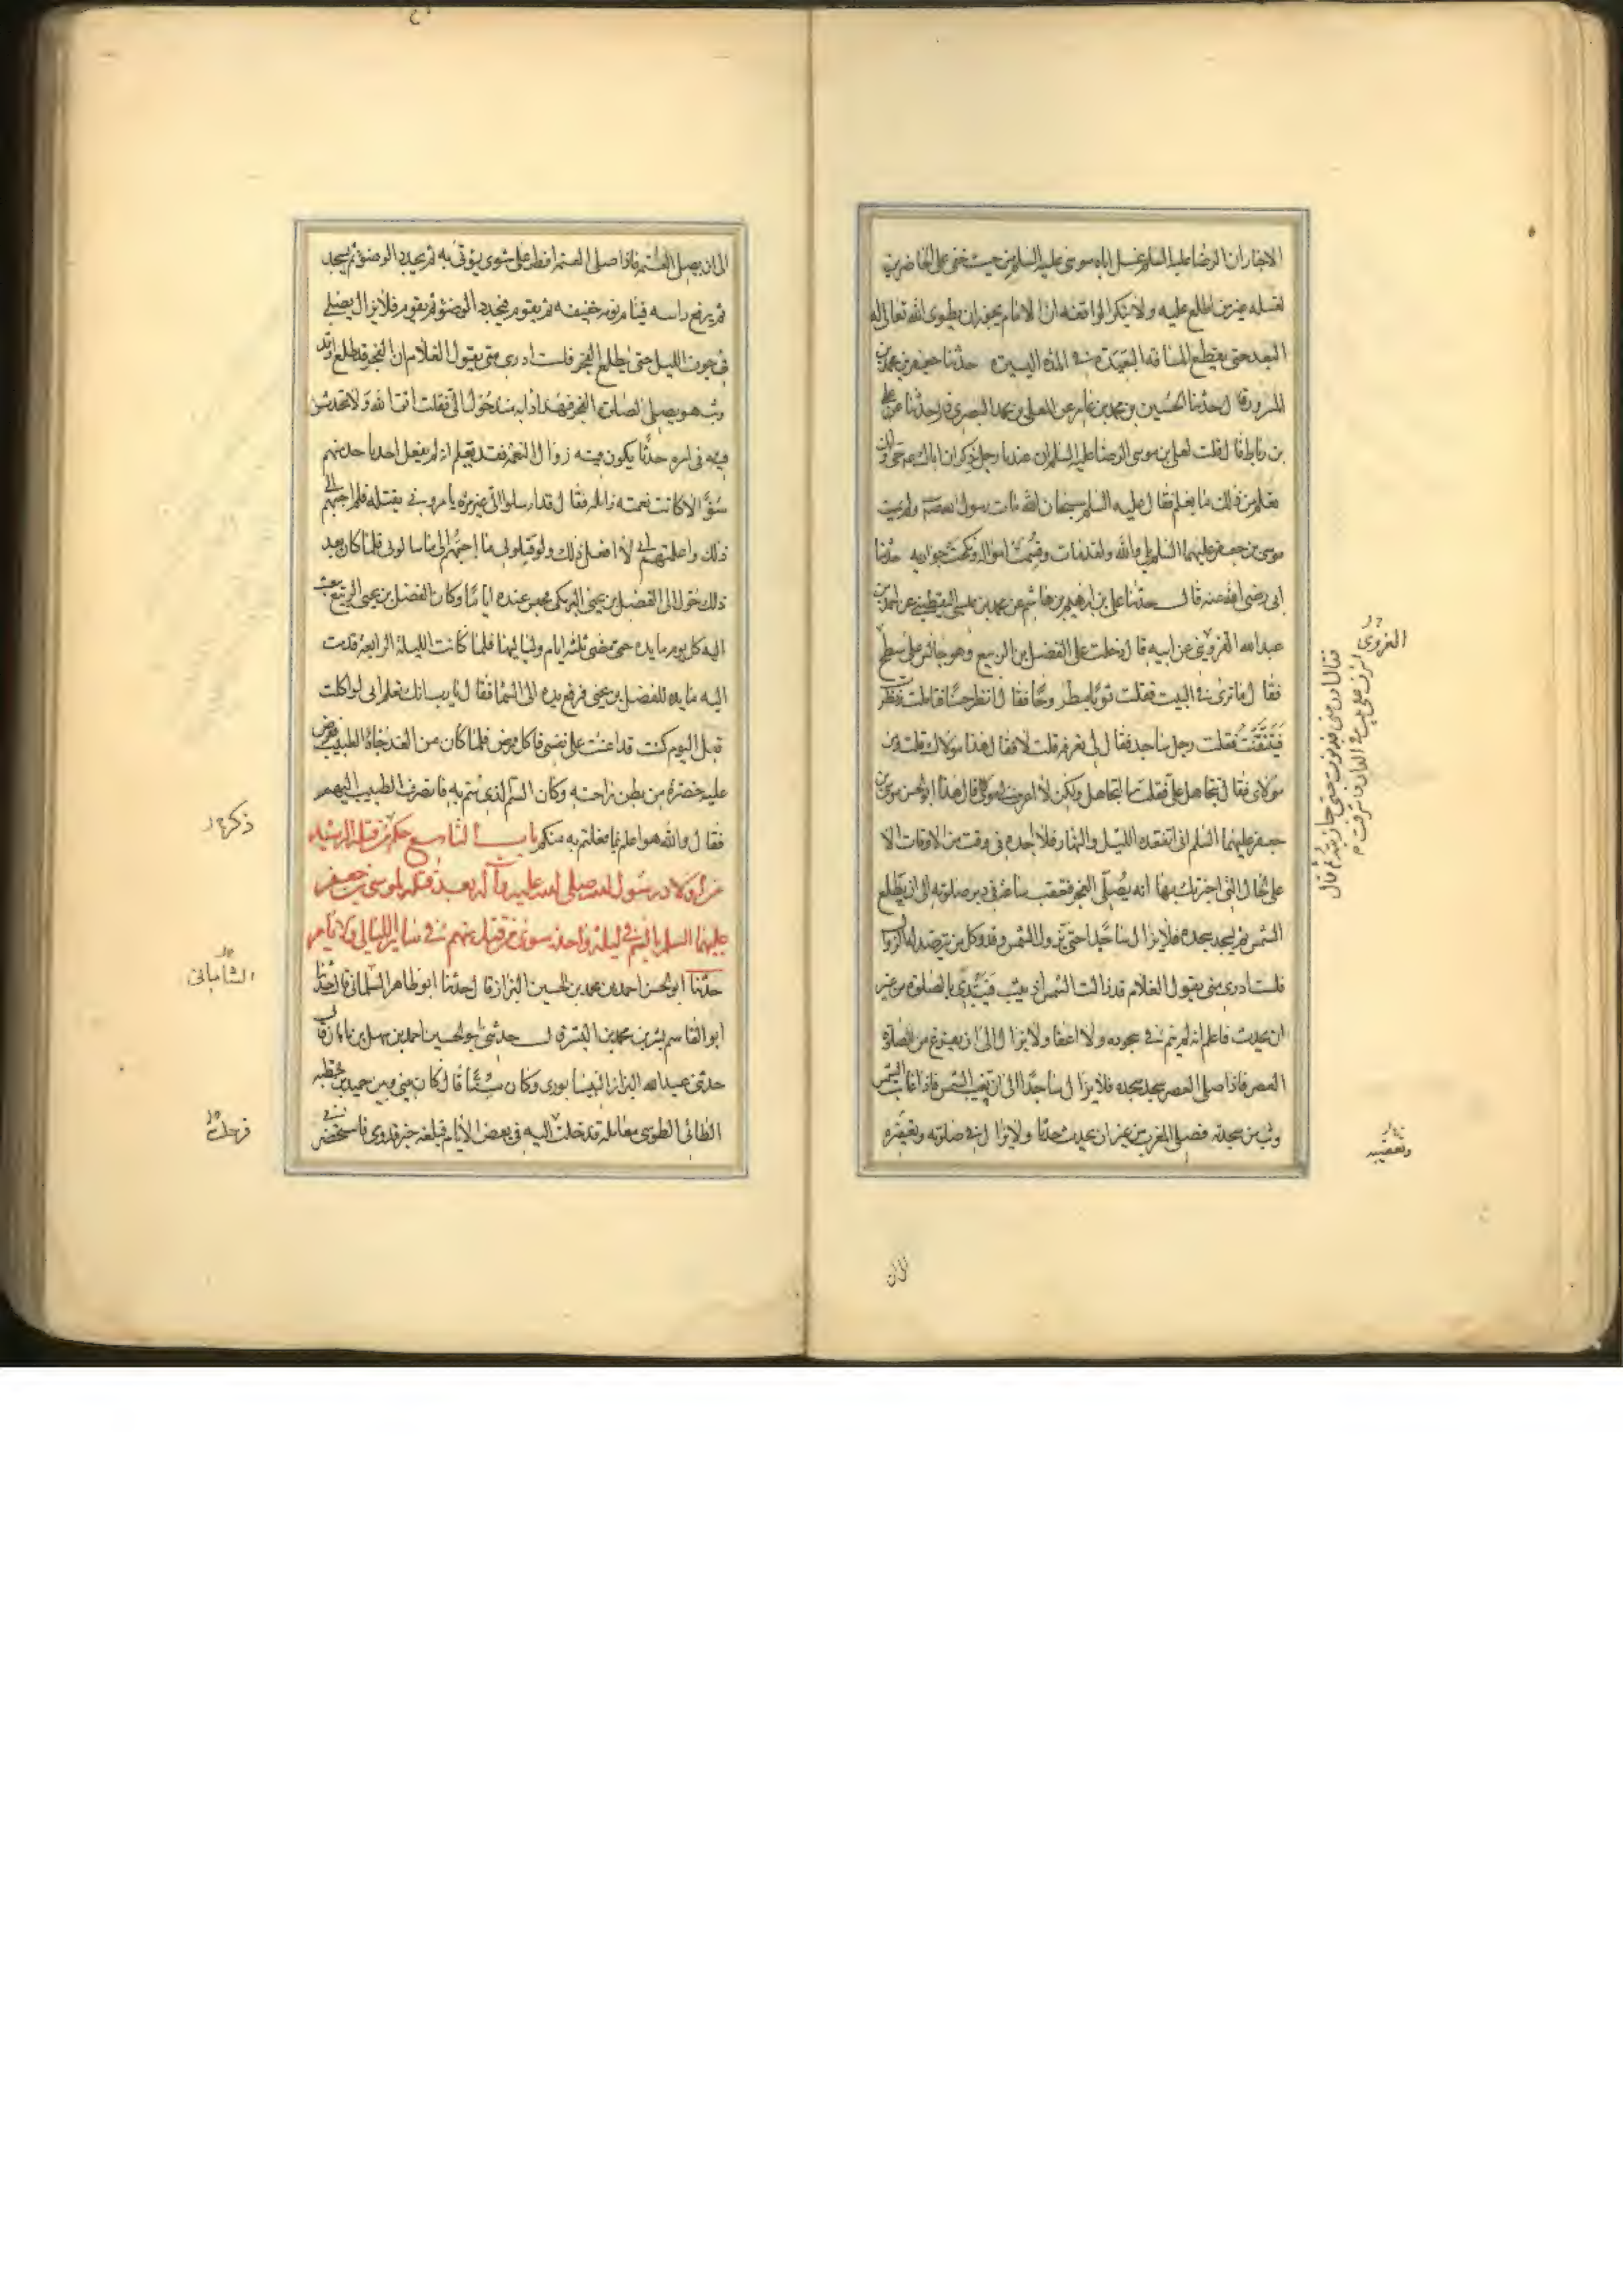 الاخبار ان الرضا عليه السلم غسل اباه موسى عليه السلم من حيث خفى على الحاضرين
لغسله غير من اطلع عليه ولا ينكر الواقفه ان الامام يجوز ان يطوى الله تعالى له
البعد حتى يقطع المسافه البعيدة فى المدة اليسيرة حدثنا جعفر بن محمد بن
المسرور قال حدثنا الحسين بن محمد بن عامر عن المعلى بن محمد البصرى قال حدثنا على
بن رباط قال قلت لعلى بن موسى الرضا عليه السلم ان عندنا رجل يذكر ان اباك حى وانك
تعلم من ذلك ما يعلم فقال عليه السلم سبحان الله مات رسول الله صم ولم يمت
موسى بن جعفر عليهما السلم بلى والله ولقد مات وقسمت امواله ونكحت جواريه حدثنا
ابى رضى الله عنه قال حدثنا على بن ابرهيم بن هاشم عن محمد بن عيسى اليقطينى عن احمد بن
عبد الله القروى عن ابيه قال دخلت على الفضل بن الربيع وهو جالس على سطح
فقال ما ترى فى البيت فقلت ثوبا مطروحا فقال انظر حسنا فتاملت فنظرت
فتيقنت فقلت رجل ساجد فقال لى تعرفه قلت لا فقال هذا مولاك قلت من
مولاى فقال تتجاهل على فقلت ما اتجاهل ولكن لا اعرف لى مولى قال هذا ابو الحسن موسى بن
جعفر عليهما السلم انى اتفقده الليل والنهار فلا اجده فى وقت من الاوقات الا
على الحال التى اخبرك بها انه يصلى الفجر فيعقب ساعة فى دبر صلوته الى ان يطلع
الشمس ثم يسجد سجدة فلا يزال ساجدا حتى تزول الشمس وقد وكل من يترصد له الزوال
فلست ادرى متى يقول الغلام قد زالت الشمس اذ يثب فيبتدى بالصلوة من غير
ان يحدث فاعلم انه لم ينم فى سجوده ولا اغفا ولا يزال الى ان يفرغ من صلوة
العصر فاذا صلى العصر سجد سجدة فلا يزال ساجدا الى ان تغيب الشمس فاذا غابت الشمس
وثب من سجدته فصلى المغرب من غير ان يحدث حدثا ولا يزال فى صلوته وتعقيبه
القروى
وتعقيبه
الى ان
الى ان يصلى العتمه فاذا صلى العتمه افطر على شوى يؤتى به ثم يجدد الوضوء ثم يسجد
ثم يرفع راسه فينام نومة خفيفه ثم يقوم فيجدد الوضوء ثم يقوم فلا يزال يصلى
فى جوف الليل حتى يطلع الفجر فلست ادرى متى يقول الغلام ان الفجر قد طلع اذ قد
وثب هو يصلى لصلوة الفجر فهذا دابه منذ حول الى فقلت اتق الله ولا تحدثن
فيه فى امره حدثا يكون منه زوال النعمة فقد تعلم انه لم يفعل احد باحد منهم
سوًا الا كانت نعمته زائلة فقال قد ارسلوا الى غير مره يامرونى بقتله فلم اجبهم الى
ذلك واعلمتهم انى لا افعل ذلك ولو قتلونى ما اجبتهم الى ما سالونى فلما كان بعد
ذلك حول الى الفضل بن يحيى البرمكى فحبس عنده اياما وكان الفضل بن الربيع يبعث
اليه كل يوم مايدة حتى مضى ثلثة ايام ولياليها فلما كانت الليلة الرابعة قدمت
اليه مايدة للفضل بن يحيى فرفع يده الى السما فقال يارب انك تعلم انى لو اكلت
قبل اليوم كنت قد اعنت على نفسى فاكل فمرض فلما كان من الغد جاءه الطبيب فعرض
عليه خضرة من بطن راحته وكان السم الذى سم به فانصرف الطبيب اليهم
فقال والله هو اعلم بما فعلتم به منكم باب التاسع حكم من قتله الرشيد
من اولاد رسول الله صلى الله عليه وآله بعد قتله لموسى بن جعفر
عليهما السلم بالسم فى ليلة واحدة سوى من قتل منهم فى ساير الليالى والايام
حدثنا ابو الحسن احمد بن محمد بن الحسين البزاز قال حدثنا ابو طاهر السلمانى قال حدثنا
ابو القاسم بشر بن محمد بن البشر قال حدثنى ابو الحسين احمد بن سهل بن ماهان قال
حدثنى عبيد الله البزاز النيسابورى وكان مسنًّا قال كان بينى وبين حميد بن قحطبه
الطائى الطوسى معاملة فدخلت اليه فى بعض الايام فبلغه خبر قدومى فاستحضرنى
ذكر
الشاماتى
فرحلت